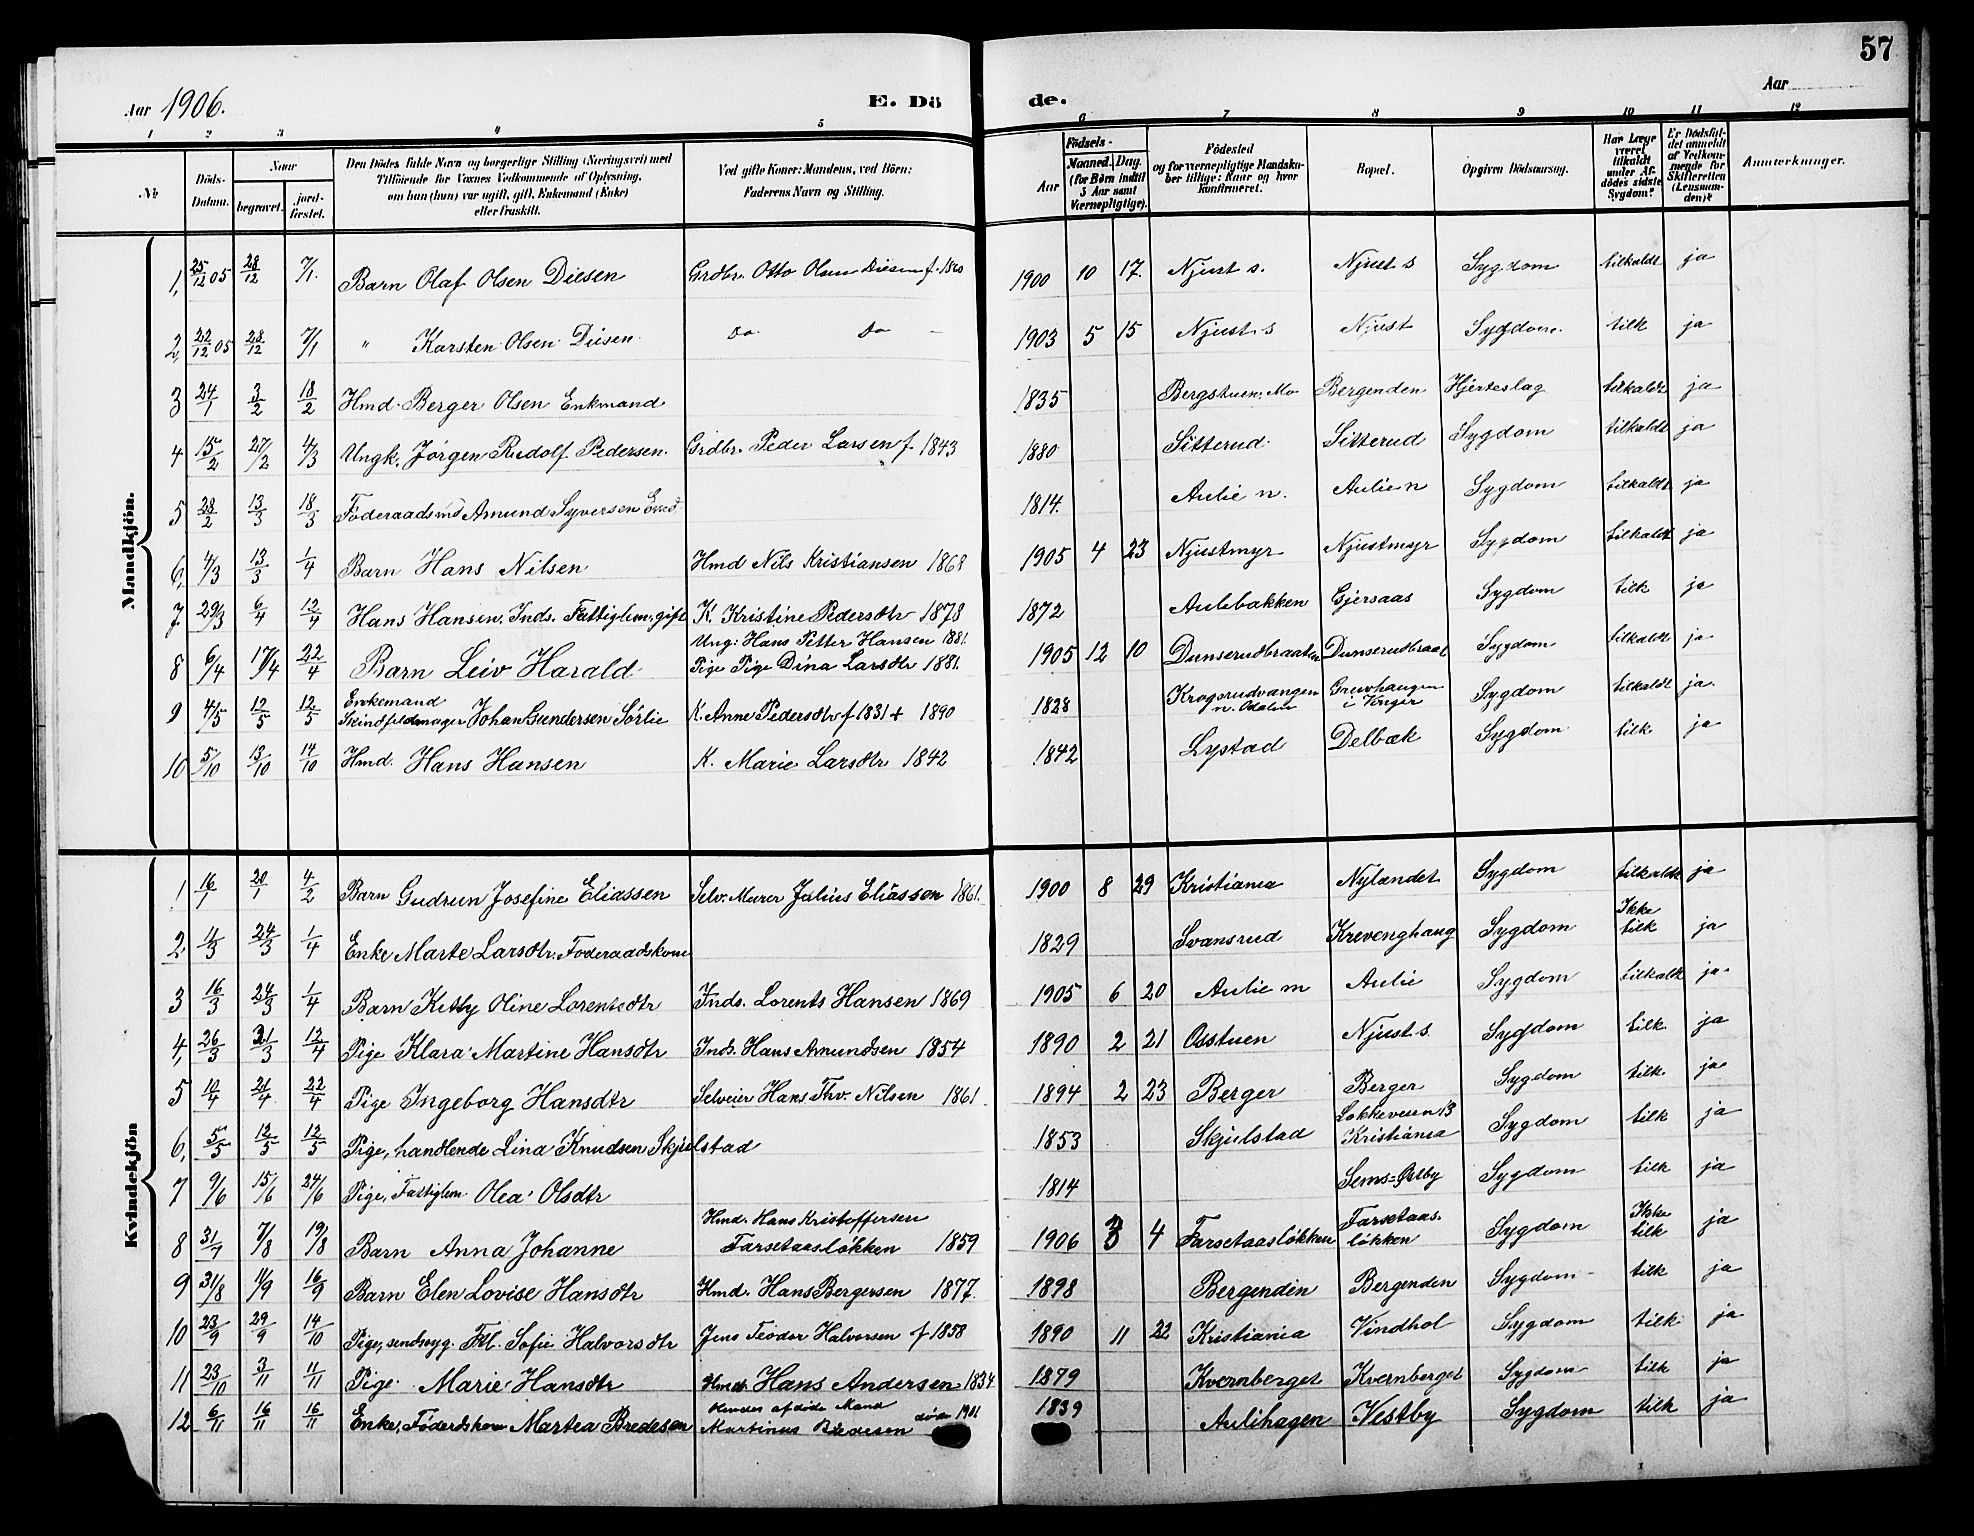 57
Aar 1906.
E. Dö
de.
Aar
1 2 3 4 5 6 7 8 9 10 11 12
No
Döds-Datum.
Naar
begravet.
jord-fæstet.
Den Dödes fulde Navn og borgerlige Stilling (Næringsvei) med
Tilföiende for Voxnes Vedkommende af Oplysning,
om han (hun) var ugift, gift, Enkemand (Enke)
eller fraskilt.
Ved gifte Koner: Mandens, ved Börn:
Faderens Navn og Stilling.
Födsels-
Aar
Maaned. Dag.
(for Börn indtil
3 Aar samt
Værnepligtige).
Födested
og for værnepligtige Mandskaber tillige: Naar og hvor
konfirmeret.
Bopæl.
Opgiven Dödsaarsag.
Har Læge
været
tilkaldt
under Afdödes sidste
Sygdom?
Er Dödsfaldet anmeldt
af Vedkommende for
Skifteretten
(Lensmanden)?
Anmærkninger.
Mandkjön.
1, 25/12 05 28/12 7/1. Barn Olaf Olsen Diesen Grdbr. Otto Olsen Diesen f. 1860 1900 10 17. Njust s. Njust s Sygdom tilkaldt ja
2, 22/12 05 28/12 7/1 " Karsten Olsen Diesen Do. Do — 1903 5 15 Njust s Njust Sygdom. tilk ja
3 24/1 3/2 18/2 Hmd. Berger Olsen Enkmand 1835 Bergstuen, Mo Bergenden Hjerteslag tilkaldt ja
4 15/2 27/2 4/3 Ungk. Jørgen Rudolf Pedersen. Grdbr. Peder Larsen f. 1843 1880 Sitterud Sitterud Sygdom tilkaldt ja
5 28/2 13/3 18/3 Føderaadsmd Amund Syversen 1814. Aulie n. Aulie n Sygdom tilkaldt ja
6, 4/3 13/3 1/4 Barn Hans Nilsen Hmd Nils Kristiansen 1868 1905 4 23 Njustmyr Njustmyr Sygdom tilkaldt ja
7. 29/3 6/4 12/4 Hans Hansen, Inds. Fattiglem, gift K. Kristine Pedersdtr 1878 1872 Aulebakken Gjersaas Sygdom tilk ja
Ung: Hans Petter Hansen 1881.
8 6/4 17/4 22/4 Barn Leiv Harald Pige Pige Dina Larsdtr 1881. 1905 12 10 Dunserudbraaten Dunserudbraat Sygdom tilkaldt ja
Enkemand
9 4/5 12/5 12/5 Skindfeldmager Johan Gundersen Sørlie K. Anne Pedersdtr f 1831 + 1890 1828 Krogsrudvangen n. Odalen i Vinger Sygdom tilkaldt ja.
10 5/10 13/10 14/10 Hmd. Hans Hansen K. Marie Larsdtr 1842 1842 Lystad Delbæk Sygdom tilk. ja
Kvindekjön
1 16/1 20/1 4/2 Barn Gudrun Josefine Eliassen Selv. Murer Julius Eliassen 1861. 1900 8 29 Kristiania Nylændet Sygdom tilkaldt ja
2 11/3 24/3 1/4 Enke Marte Larsdtr. Føderaadskone 1829 Svansrud Krevenghaug Sygdom Ikke tilk ja
3 16/3 24/3 1/4 Barn Kitty Oline Lorentsdtr Inds. Lorents Hansen 1869 1905 6 20 Aulie m Aulie Sygdom tilkaldt ja.
4, 26/3 31/3 12/4 Pige Klara Martine Hansdtr Inds. Hans Amundsen 1854 1890 2 21 Osstuen Njust s Sygdom tilk. ja
5 10/4 21/4 22/4 Pige Ingeborg Hansdtr Selveier Hans Thv. Nilsen 1861 1894 2 23 Berger Berger Sygdom tilk. ja
6, 5/5 12/5 12/5 Pige, handlende Lina Knudsen Skjulstad 1853 Skjulstad Løkkeveien 13 Kristiania Sygdom tilk ja
7 9/6 15/6 24/6 Pige, Fattiglem Olea Olsdtr 1814 Sems=Østby Sygdom tilk ja
Hmd. Hans Kristoffersen
8 31/7 7/8 19/8 Barn Anna Johanne Farsetaasløkken 1859 1906 3 4 Farsetaasløkken Farsetaas-løkken Sygdom Ikke tilk ja
9 31/8 11/9 16/9 Barn Elen Lovise Hansdtr Hmd. Hans Bergersen 1877. 1898 Bergenden Bergenden Sygdom tilk ja
10 23/9 29/9 14/10 Pige, sindssyg. Fl. Sofie Halvorsdtr Jens Teodor Halvorsen f 1858 1890 11 22 Kristiania Vindhol Sygdom tilk ja
11 23/10 3/11 11/11 Pige. Marie Hansdtr Hmd. Hans Andersen 1834 1879 Kvernberget Kvernberget Sygdom tilk ja
12 6/11 16/11 16/11 Enke, Føderdskone Martea Bredesen Hendes afdøde Mand Martinus Bredesen døde 1901 1839 Aulihagen Vestby Sygdom tilk ja